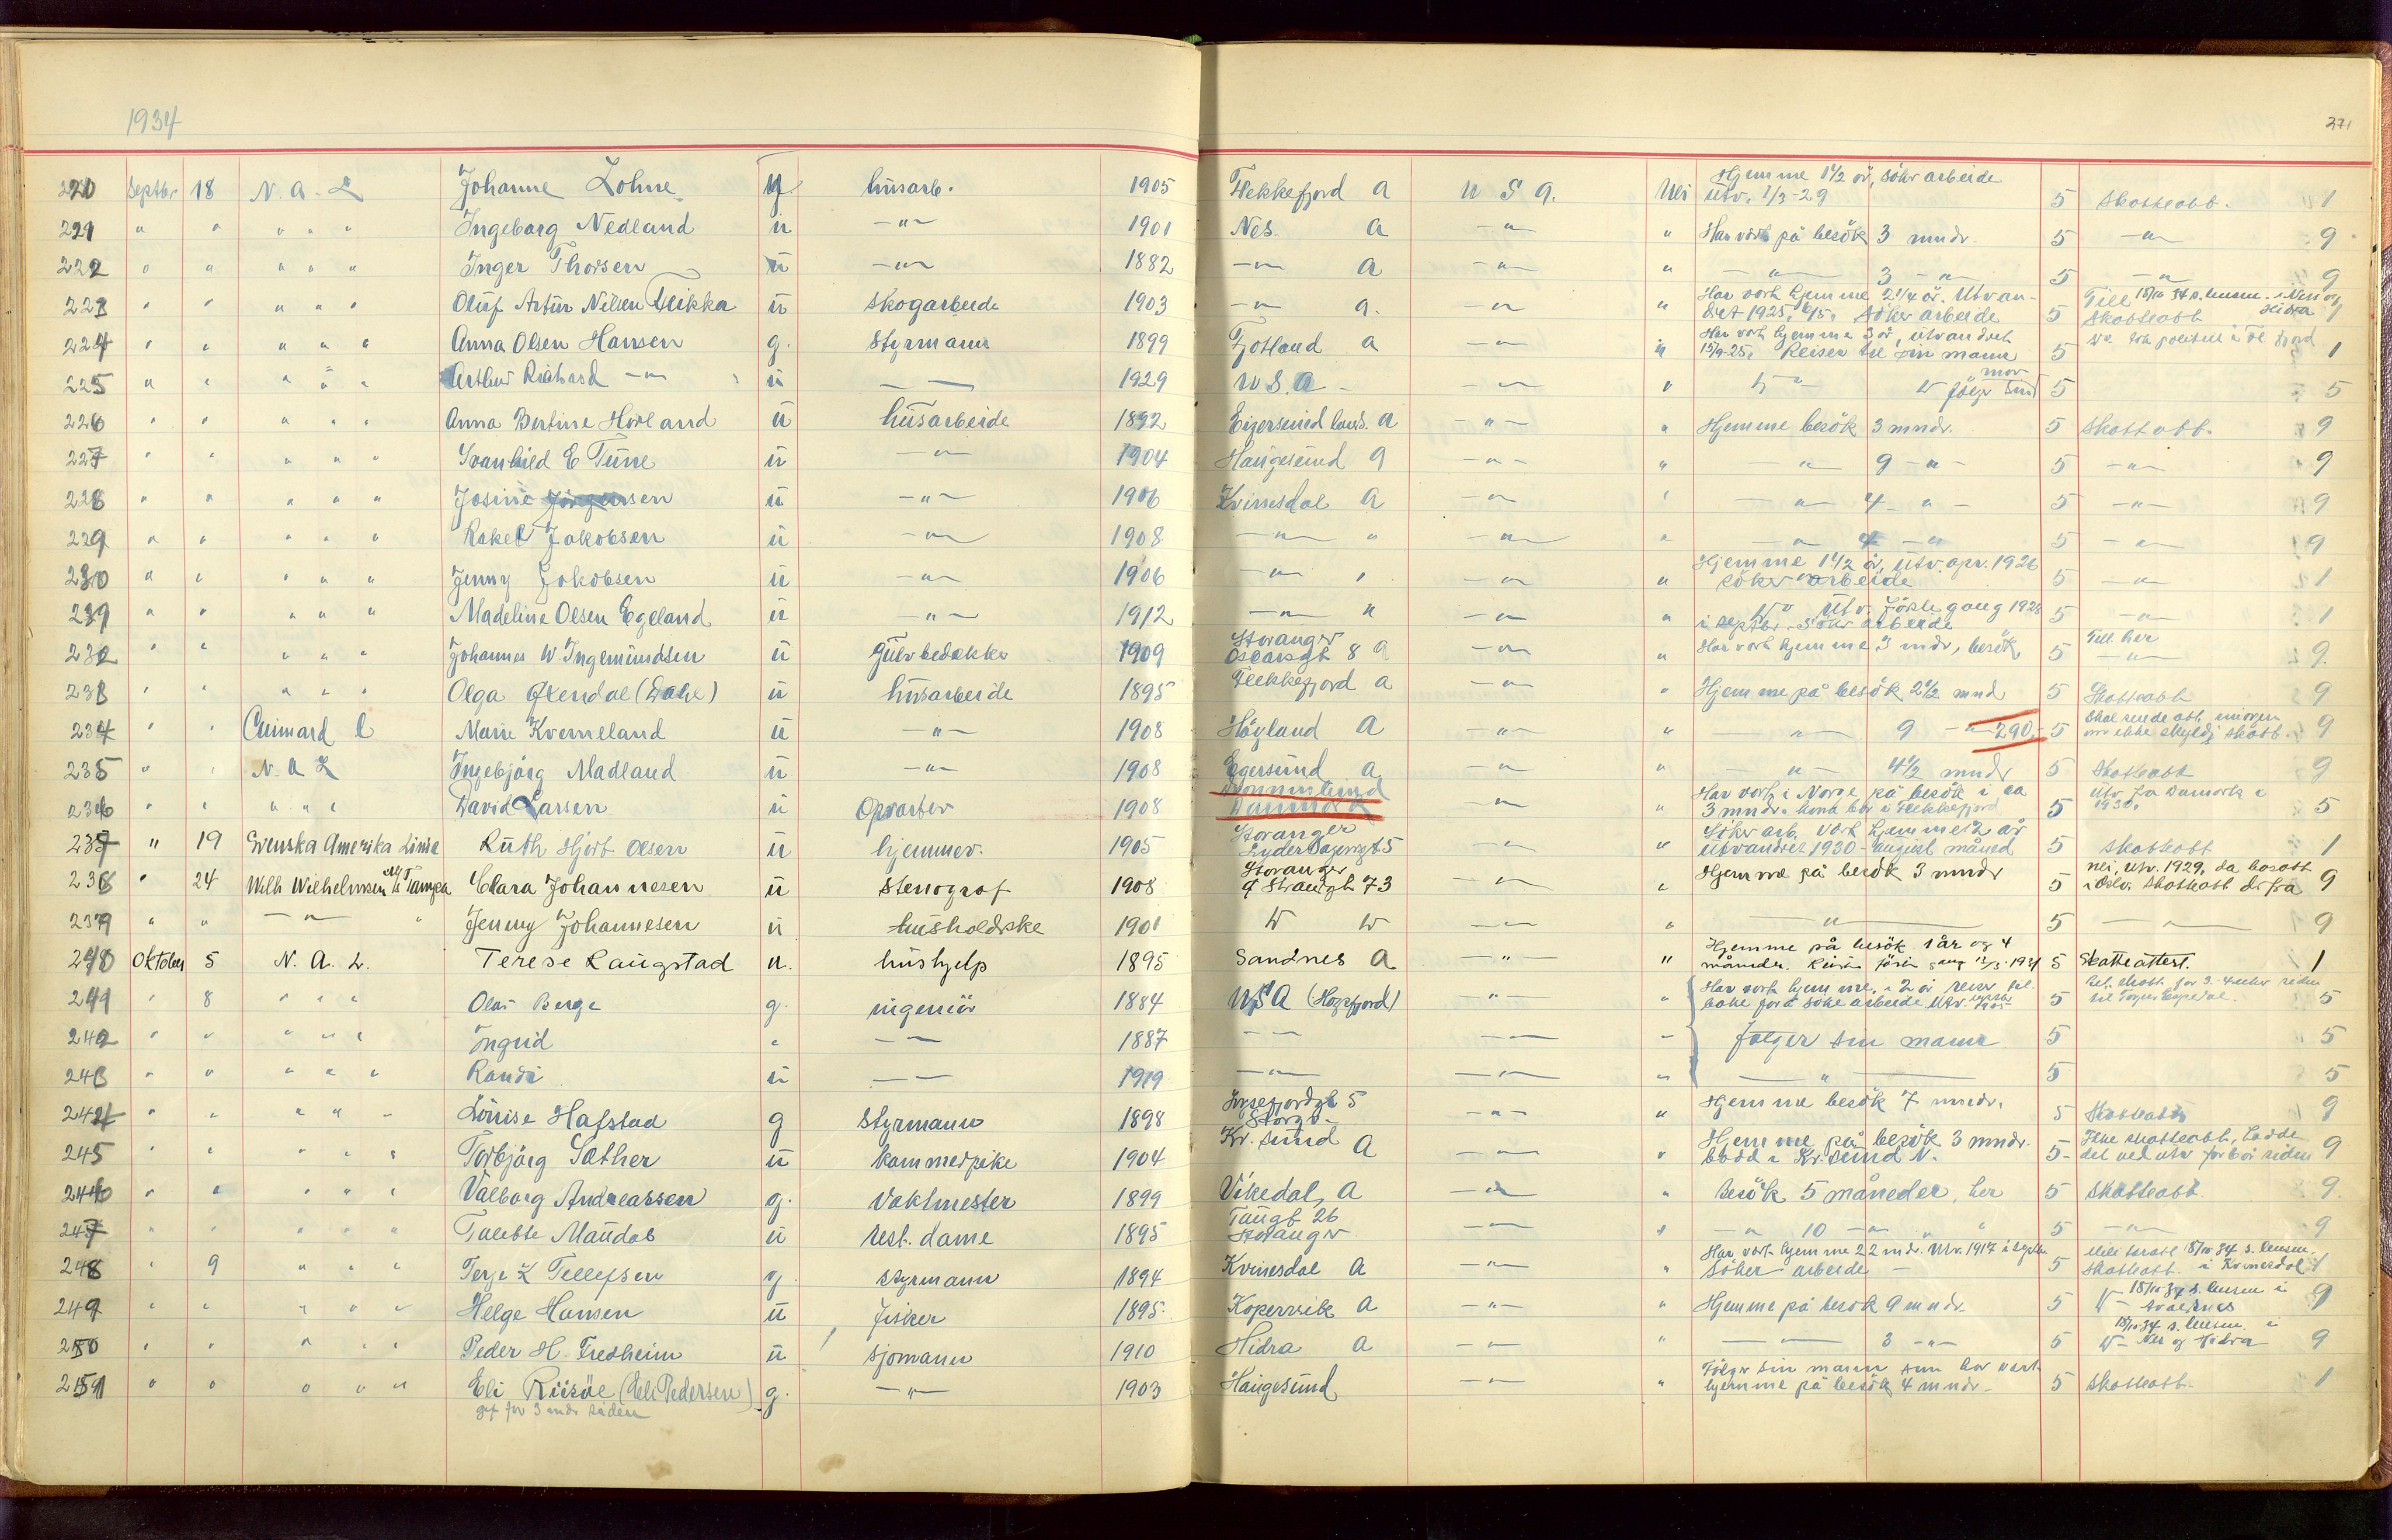 1934
271
220 Septbr 18 N. A. L Johanne Lohne g husarb. 1905 Flekkefjord a U S A. Nei Hjemme 1 1/2 år, söker arbeide utv. 1/3-29 5 Skatteatt. 1
221 " " " " " Ingeborg Nedland u -"- 1901 Nes. a -"- " Har vært på besök 3 mndr. 5 -"- 9
222 " " " " " Inger Thorsen u -"- 1882 -"- a -"- " -"- 3 -"- 5 -"- 9
223 " " " " " Oluf Artur Nelsen u skogarbeide 1903 -"- a. -"- " Har vært hjemme 2 1/4 år. Utvandret 1925, söker arbeide 5 Till 15/10 34 s. lensm. i Nes og Hidra Skatteatt 1
224 " " " " " Anna Olsen Hansen g. Styrmann 1899 Fjotland a -"- " Har vært hjemme 3 år, utvandret 15/9-25. Reiser til sin mann 5 1
225 " " " " " Arthur Richard -"- u 1929 U.S.A - -"- " mor 5 5
226 " " " " " Anna Bertine Hovland u husarbeide 1892 Eigersund lands. a -"- " Hjemme besök 3 mndr. 5 Skatt att. 9
227 " " " " " Svanhild E Tune u -"- 1904 Haugesund a -"- " -"- 9 -"- 5 -"- 9
228 " " " " " Josine u -"- 1906 Kvinesdal a -"- " -"- 4 -"- 5 -"- 9
229 " " " " " Rakel Jakobsen u -"- 1908 -"- " -"- " -"- 4 -"- 5 -"- 9
230 " " " " " Jenny Jakobsen u -"- 1906 -"- " -"- " Hjemme 1 1/2 år, utv. apr. 1926 söker arbeide 5 -"- 1
231 " " " " " Madeline Olsen Egeland u -"- 1912 -"- " -"- " Utv. förste gang 1928 i septbr. söker arbeide 5 -"- 1
232 " " " " " Johannes W. Ingemundsen u Gulvbedekker 1909 Stavanger Oscarsgt 8 a -"- " Har vært hjemme 3 mdr, besök, 5 Till her -"- 9.
233 " " " " " Olga Oxendal (Dahl) u husarbeide 1895 Flekkefjord a -"- " Hjemme på besök 2 1/2 mnd 5 Skatteatt 9
234 " " Cunard L Marie Kverneland u -"- 1908 Höyland a -"- " -"- 9 -"- 290.- 5 Skal sende att. imorgen om ikke skyldig skatt. 9
235 " " N. A L Ingebjörg Madland u -"- 1908 Egersund a -"- " -"- 4 1/2 mndr 5 Skatteatt 9
236 " " " " " David Larsen u Opvarter 1908 Danmark -"- " Har vært i Norge på besök i ca 3 mndr. kona bor i Flekkefjord 5 Utv fra Danmark i 1930. 5
237 " 19 Svenska Amerika Linie Ruth Hjort Olsen u hjemmev. 1905 Stavanger Lyder Sagensgt 5 -"- " Söker arb. vært hjemme 2 år utvandret 1930 - august måned 5 Skatteatt 1
238 " 24 Wilh Wilhelmsen M/S Tampa Clara Johannesen u Stenograf 1908 Stavanger 73 -"- " Hjemme på besök 3 mndr 5 nei, utv. 1929, da bosatt i Oslo. Skatteatt derfra 9
239 " " -"- " Jenny Johannesen u husholdske 1901 -"- " -"- 5 -"- 9
240 Oktober 5 N. A. L. Terese Raugstad u. hushjelp 1895 Sandnes a -"- " Hjemme på besök 1 år og 4 måneder. 1931 5 Skatteattest. 1
241 " 8 " " " Olai Berge g. ingeniör 1884 USA (Högsfjord) -"- " Har vært hjemme, i 2 år reiser tilbake for å söke arbeide Utv. 1905 5 5
242 " " " " " Ingrid " -"- 1887 -"- -"- - Fölger sin mann 5 5
243 " " " " " Randi u -"- 1919 -"- -"- " -"- 5 5
244 " " " " - Lovise Hafstad g Styrmann 1898 Lysefjordgt 5 Stavgr. -"- " Hjemme besök 7 mndr. 5 Skatteatt 9
245 " " " " " Torbjörg Sæther u kammerpike 1904 Kr. sund a -"- " Hjemme på besök 3 mndr. bodd i Kr. sund N. 5 Ikke skatteatt, hadde det ved utv for 6 år siden 9
246 " " " " " Valborg Andreassen g. Vaktmester 1899 Vikedal, a -"- " Besök 5 måneder, her 5 Skatteatt. 9.
247 " " " " " Talette Maudal u rest. dame 1895 Taugt 26 Stavanger -"- " -"- 10 -"- " " 5 -"- 9
248 " 9 " " " Terje L Tellefsen g. styrmann 1894 Kvinesdal a -"- " Har vært hjemme 22 mdr. Utv. 1917 i septbr. söker arbeide - 5 15/10 34 s. lensm. Skatteatt. i Kvinesdal 1
249 " " " " " Helge Hansen u fisker 1895. Kopervik a -"- " Hjemme på besök 9 mndr. 5 15/10 34 s. lensm i Avaldsnes 9
250 " " " " Peder H. Tredheim u sjömann 1910 Hidra a -"- " -"- 3 -"- 5 15/10 34 s. lensm. i Nes og Hidra 9
251 " " " " " Eli Riisöe (Eli Pedersen) g. -"- 1903 Haugesund -"- " Fölger sin mann som har vært hjemme på besök 4 mndr. 5 Skatteatt. 1
gift for 3 mdr siden